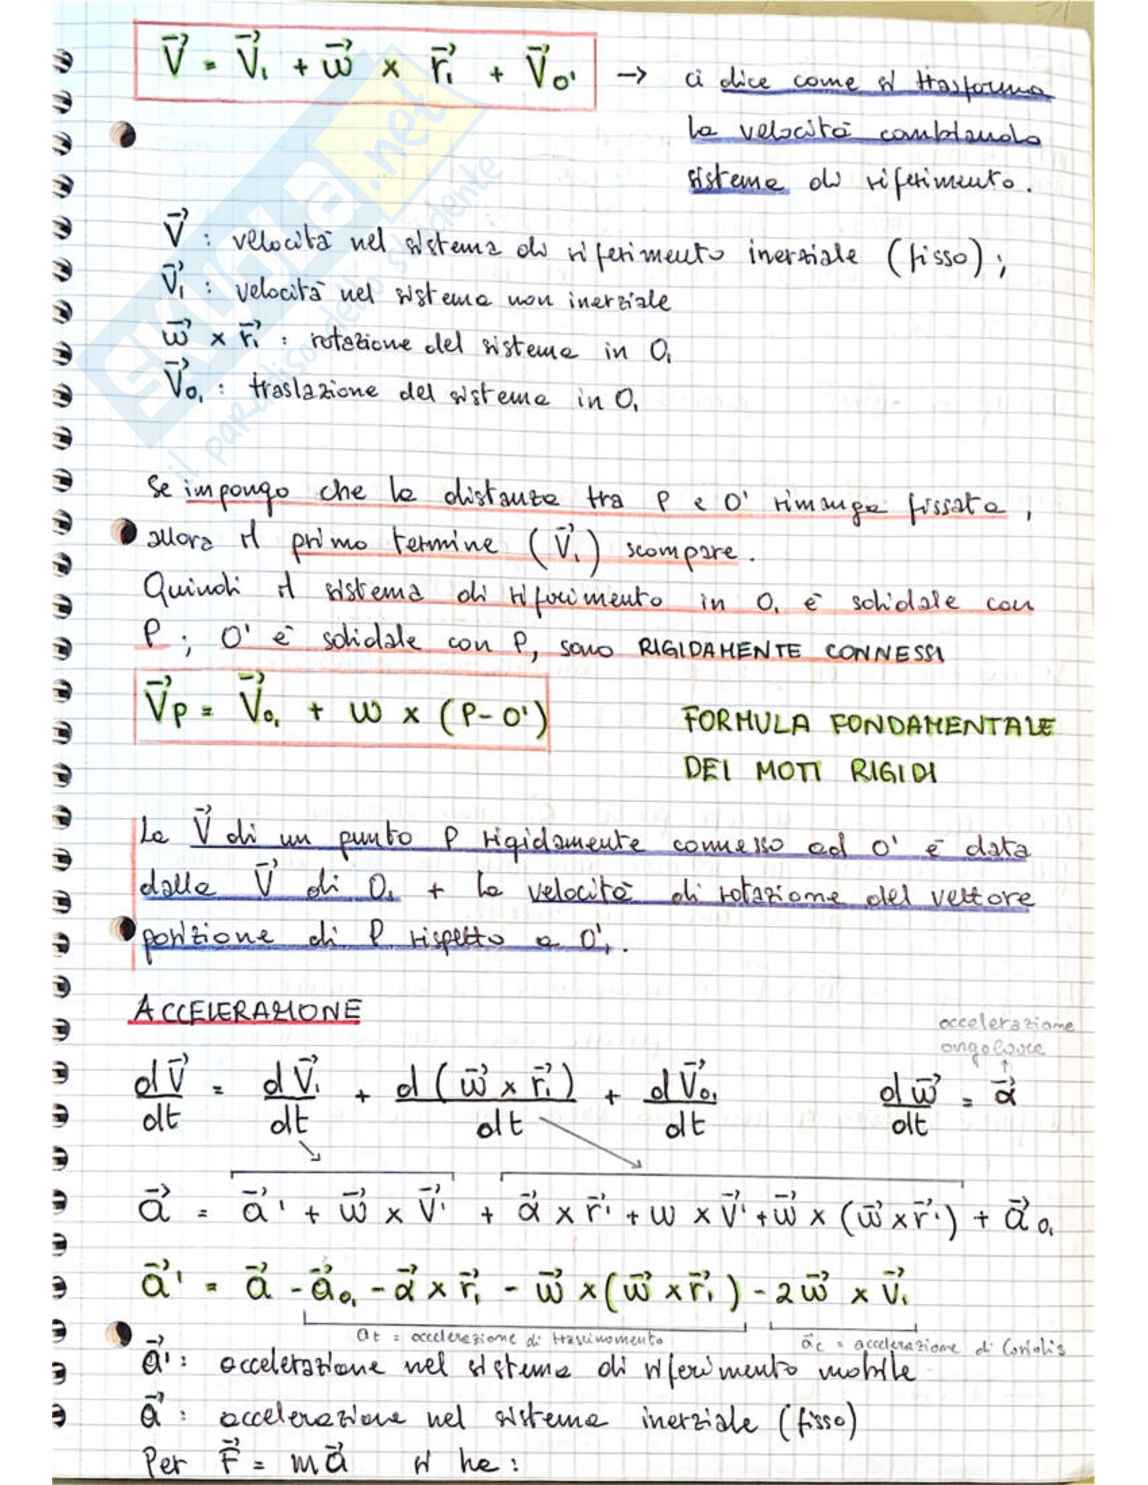 V⃗ = V⃗₁ + ω⃗ × r⃗₁ + V⃗o' → ci dice come si trasforma
la velocità cambiando
sistema di riferimento.
V⃗ : velocità nel sistema di riferimento inerziale (fisso);
V⃗₁ : velocità nel sistema non inerziale
ω⃗ × r⃗₁ : rotazione del sistema in O₁
V⃗o₁ : traslazione del sistema in O₁
SKUOLA.net
il paradiso dello studente
Se impongo che la distanza tra P e O' rimanga fissata,
allora il primo termine (V⃗₁) scompare.
Quindi il sistema di riferimento in O₁ è solidale con
P; O' è solidale con P, sono RIGIDAMENTE CONNESSI
V⃗p = V⃗o₁ + ω × (P-O') FORMULA FONDAMENTALE
DEI MOTI RIGIDI
La V⃗ di un punto P rigidamente connesso ad O' è data
dalla V⃗ di O₁ + la velocità di rotazione del vettore
posizione di P rispetto a O'₁.
ACCELERAZIONE
accelerazione
angolare
↑
dV⃗/dt = dV⃗₁/dt + d(ω⃗ × r⃗₁)/dt + dV⃗o₁/dt dω⃗/dt = α⃗
a⃗ = a⃗' + ω⃗ × V⃗' + α⃗ × r⃗' + ω × V⃗' + ω⃗ × (ω⃗ × r⃗') + a⃗o₁
a⃗' = a⃗ - a⃗o₁ - α⃗ × r⃗₁ - ω⃗ × (ω⃗ × r⃗₁) - 2ω⃗ × V⃗₁
at = accelerazione di trascinamento a⃗c = accelerazione di Coriolis
a⃗' : accelerazione nel sistema di riferimento mobile
a⃗ : accelerazione nel sistema inerziale (fisso)
Per F⃗ = ma⃗ si ha: